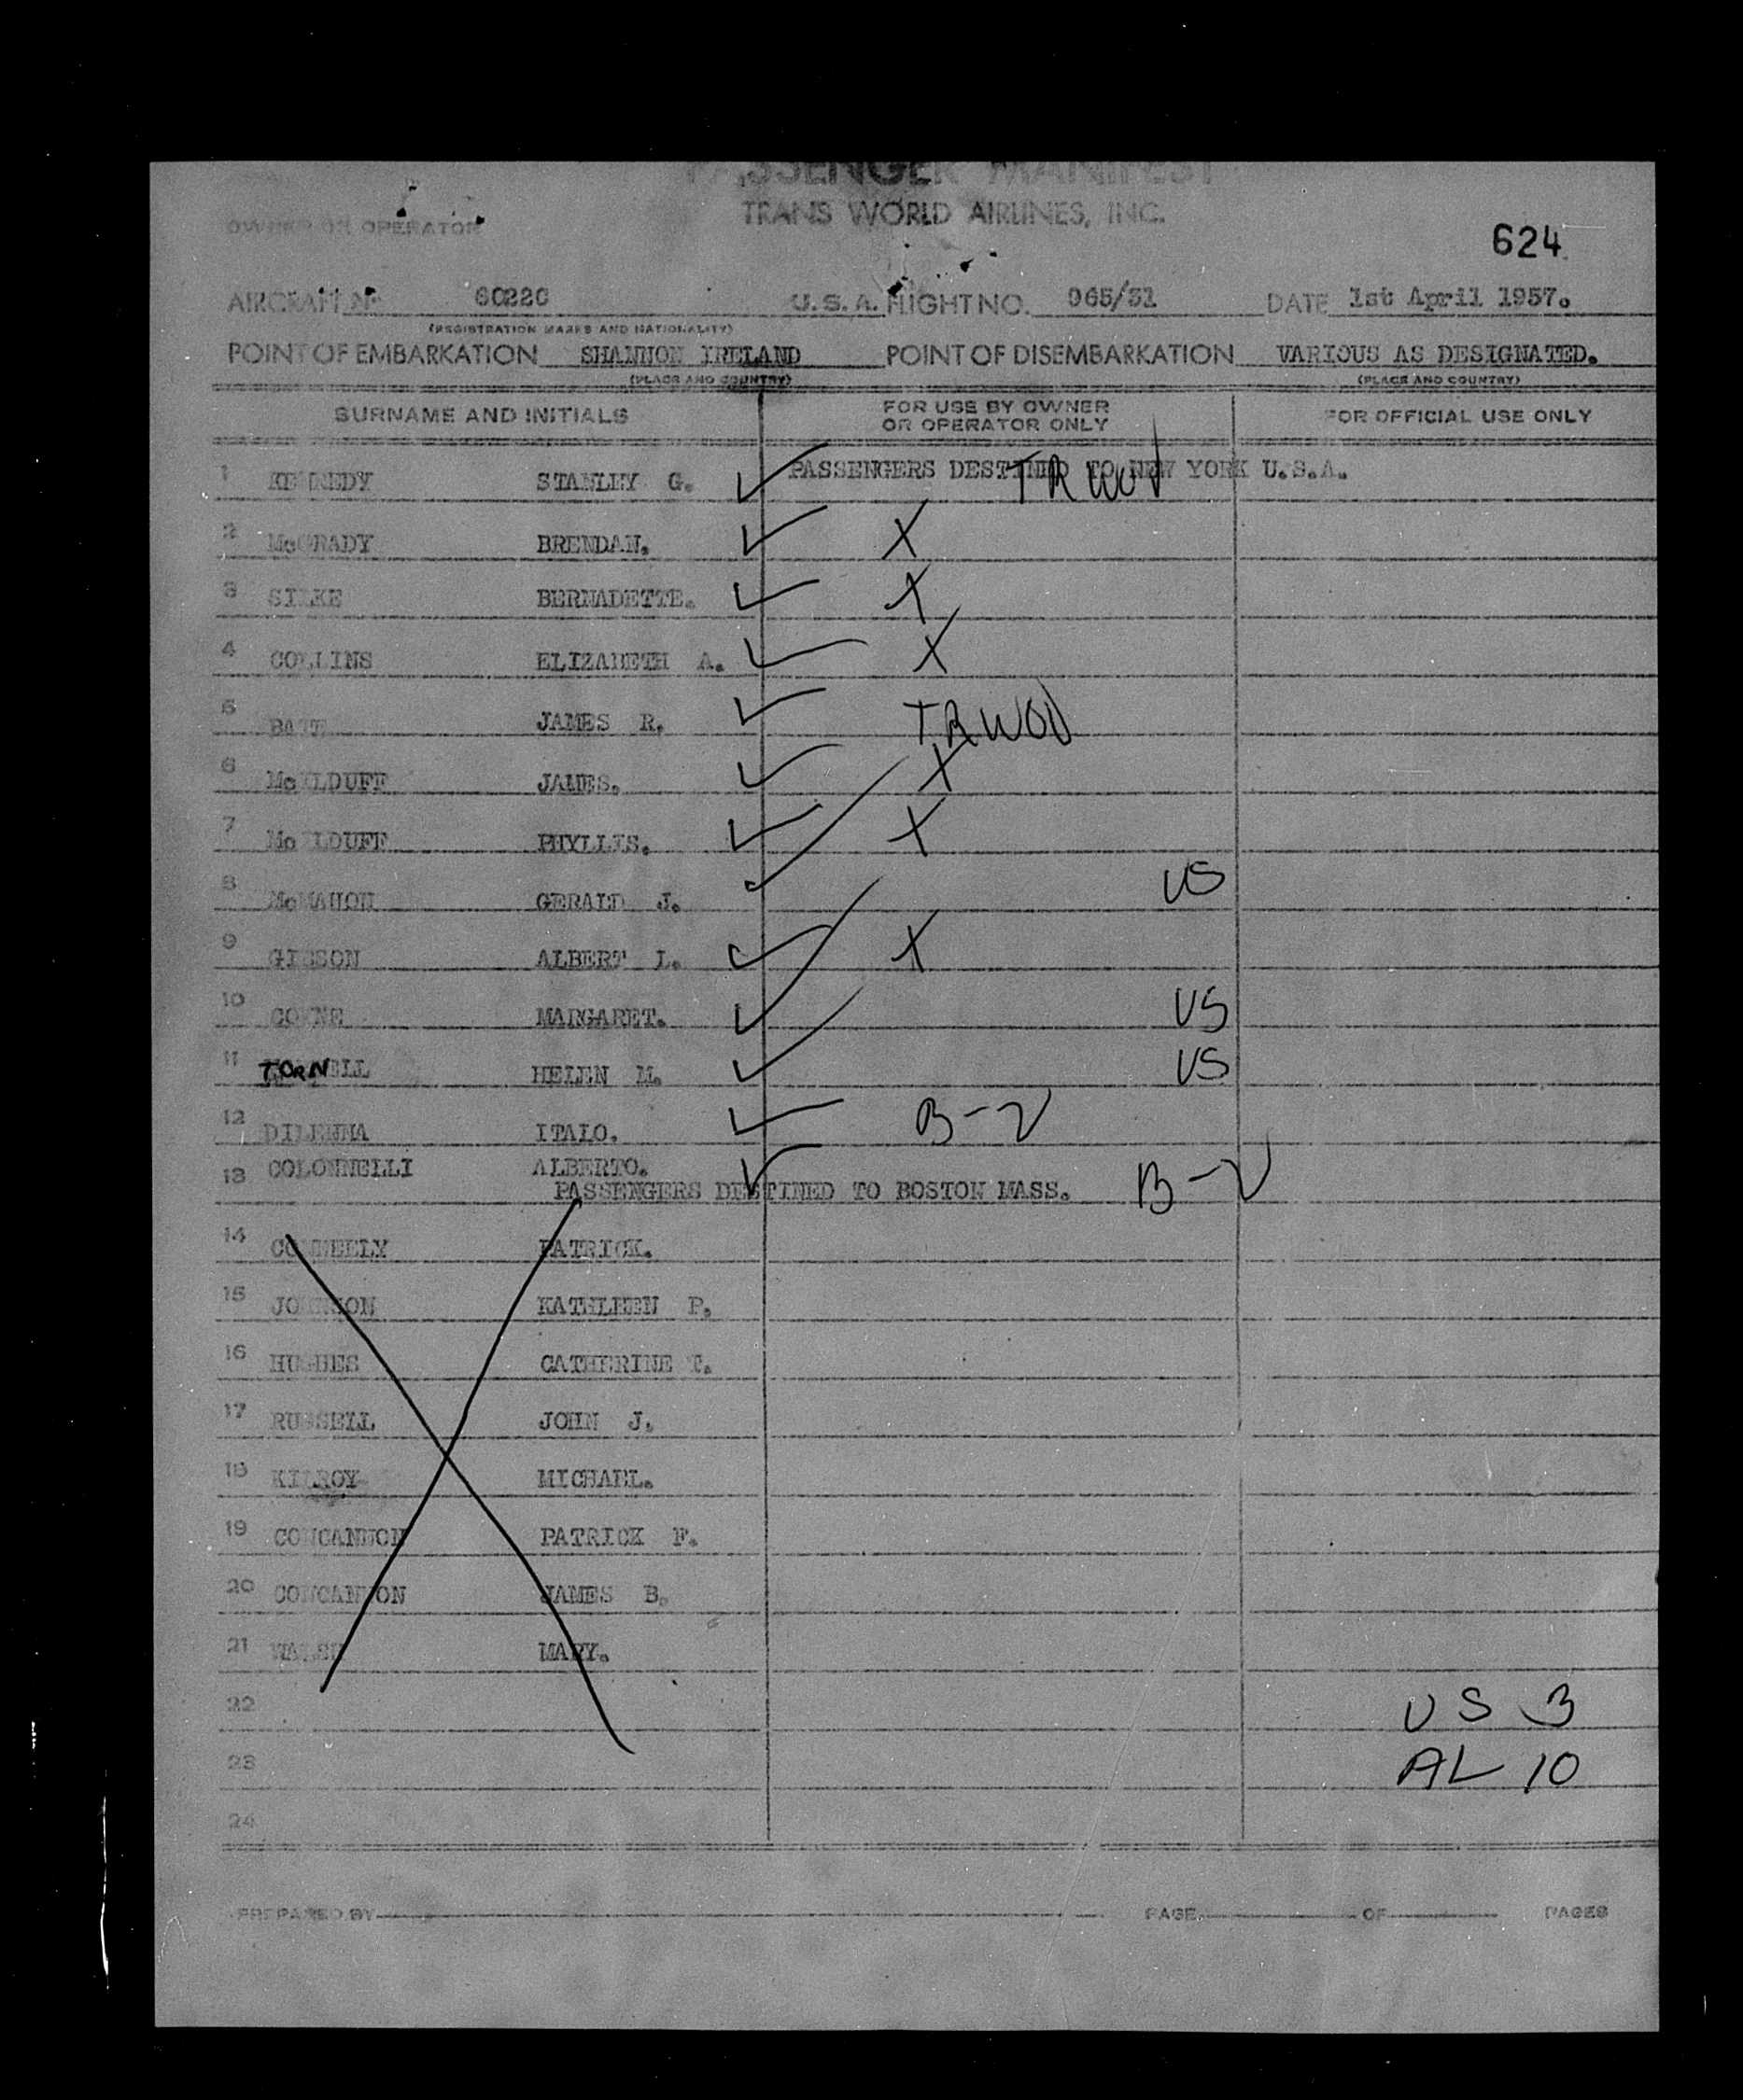 PASSENGER MANIFEST
TRANS WORLD AIRLINES, INC.
OWNER OR OPERATOR
624
AIRCRAFT Nº 6022C U.S.A. FLIGHT NO. 965/31 DATE 1st April 1957.
(REGISTRATION MARKS AND NATIONALITY)
POINT OF EMBARKATION SHANNON IRELAND POINT OF DISEMBARKATION VARIOUS AS DESIGNATED.
(PLACE AND COUNTRY) (PLACE AND COUNTRY)
SURNAME AND INITIALS FOR USE BY OWNER OR OPERATOR ONLY FOR OFFICIAL USE ONLY
PASSENGERS DESTINED TO NEW YORK U.S.A.
1 KENNEDY STANLEY G. TRWOV
2 McGRADY BRENDAN. X
3 SILKE BERNADETTE. X
4 COLLINS ELIZABETH A. X
5 BATT JAMES R. TRWOV
6 McILDUFF JAMES. X
7 McILDUFF PHYLLIS. X
8 McMAHON GERALD J. US
9 GIBSON ALBERT L. X
10 COYNE MARGARET. US
11 TORNELL HELEN M. US
12 DILENNA ITALO. B-2
13 COLONNELLI ALBERTO.
PASSENGERS DESTINED TO BOSTON MASS. B-2
14 CONNEELY PATRICK.
15 JOHNSON KATHLEEN P.
16 HUGHES CATHERINE T.
17 RUSSELL JOHN J.
18 KILROY MICHAEL.
19 CONCANNON PATRICK F.
20 CONCANNON JAMES B.
21 WALSH MARY.
22 US 3
23 AL 10
24
PREPARED BY PAGE OF PAGES